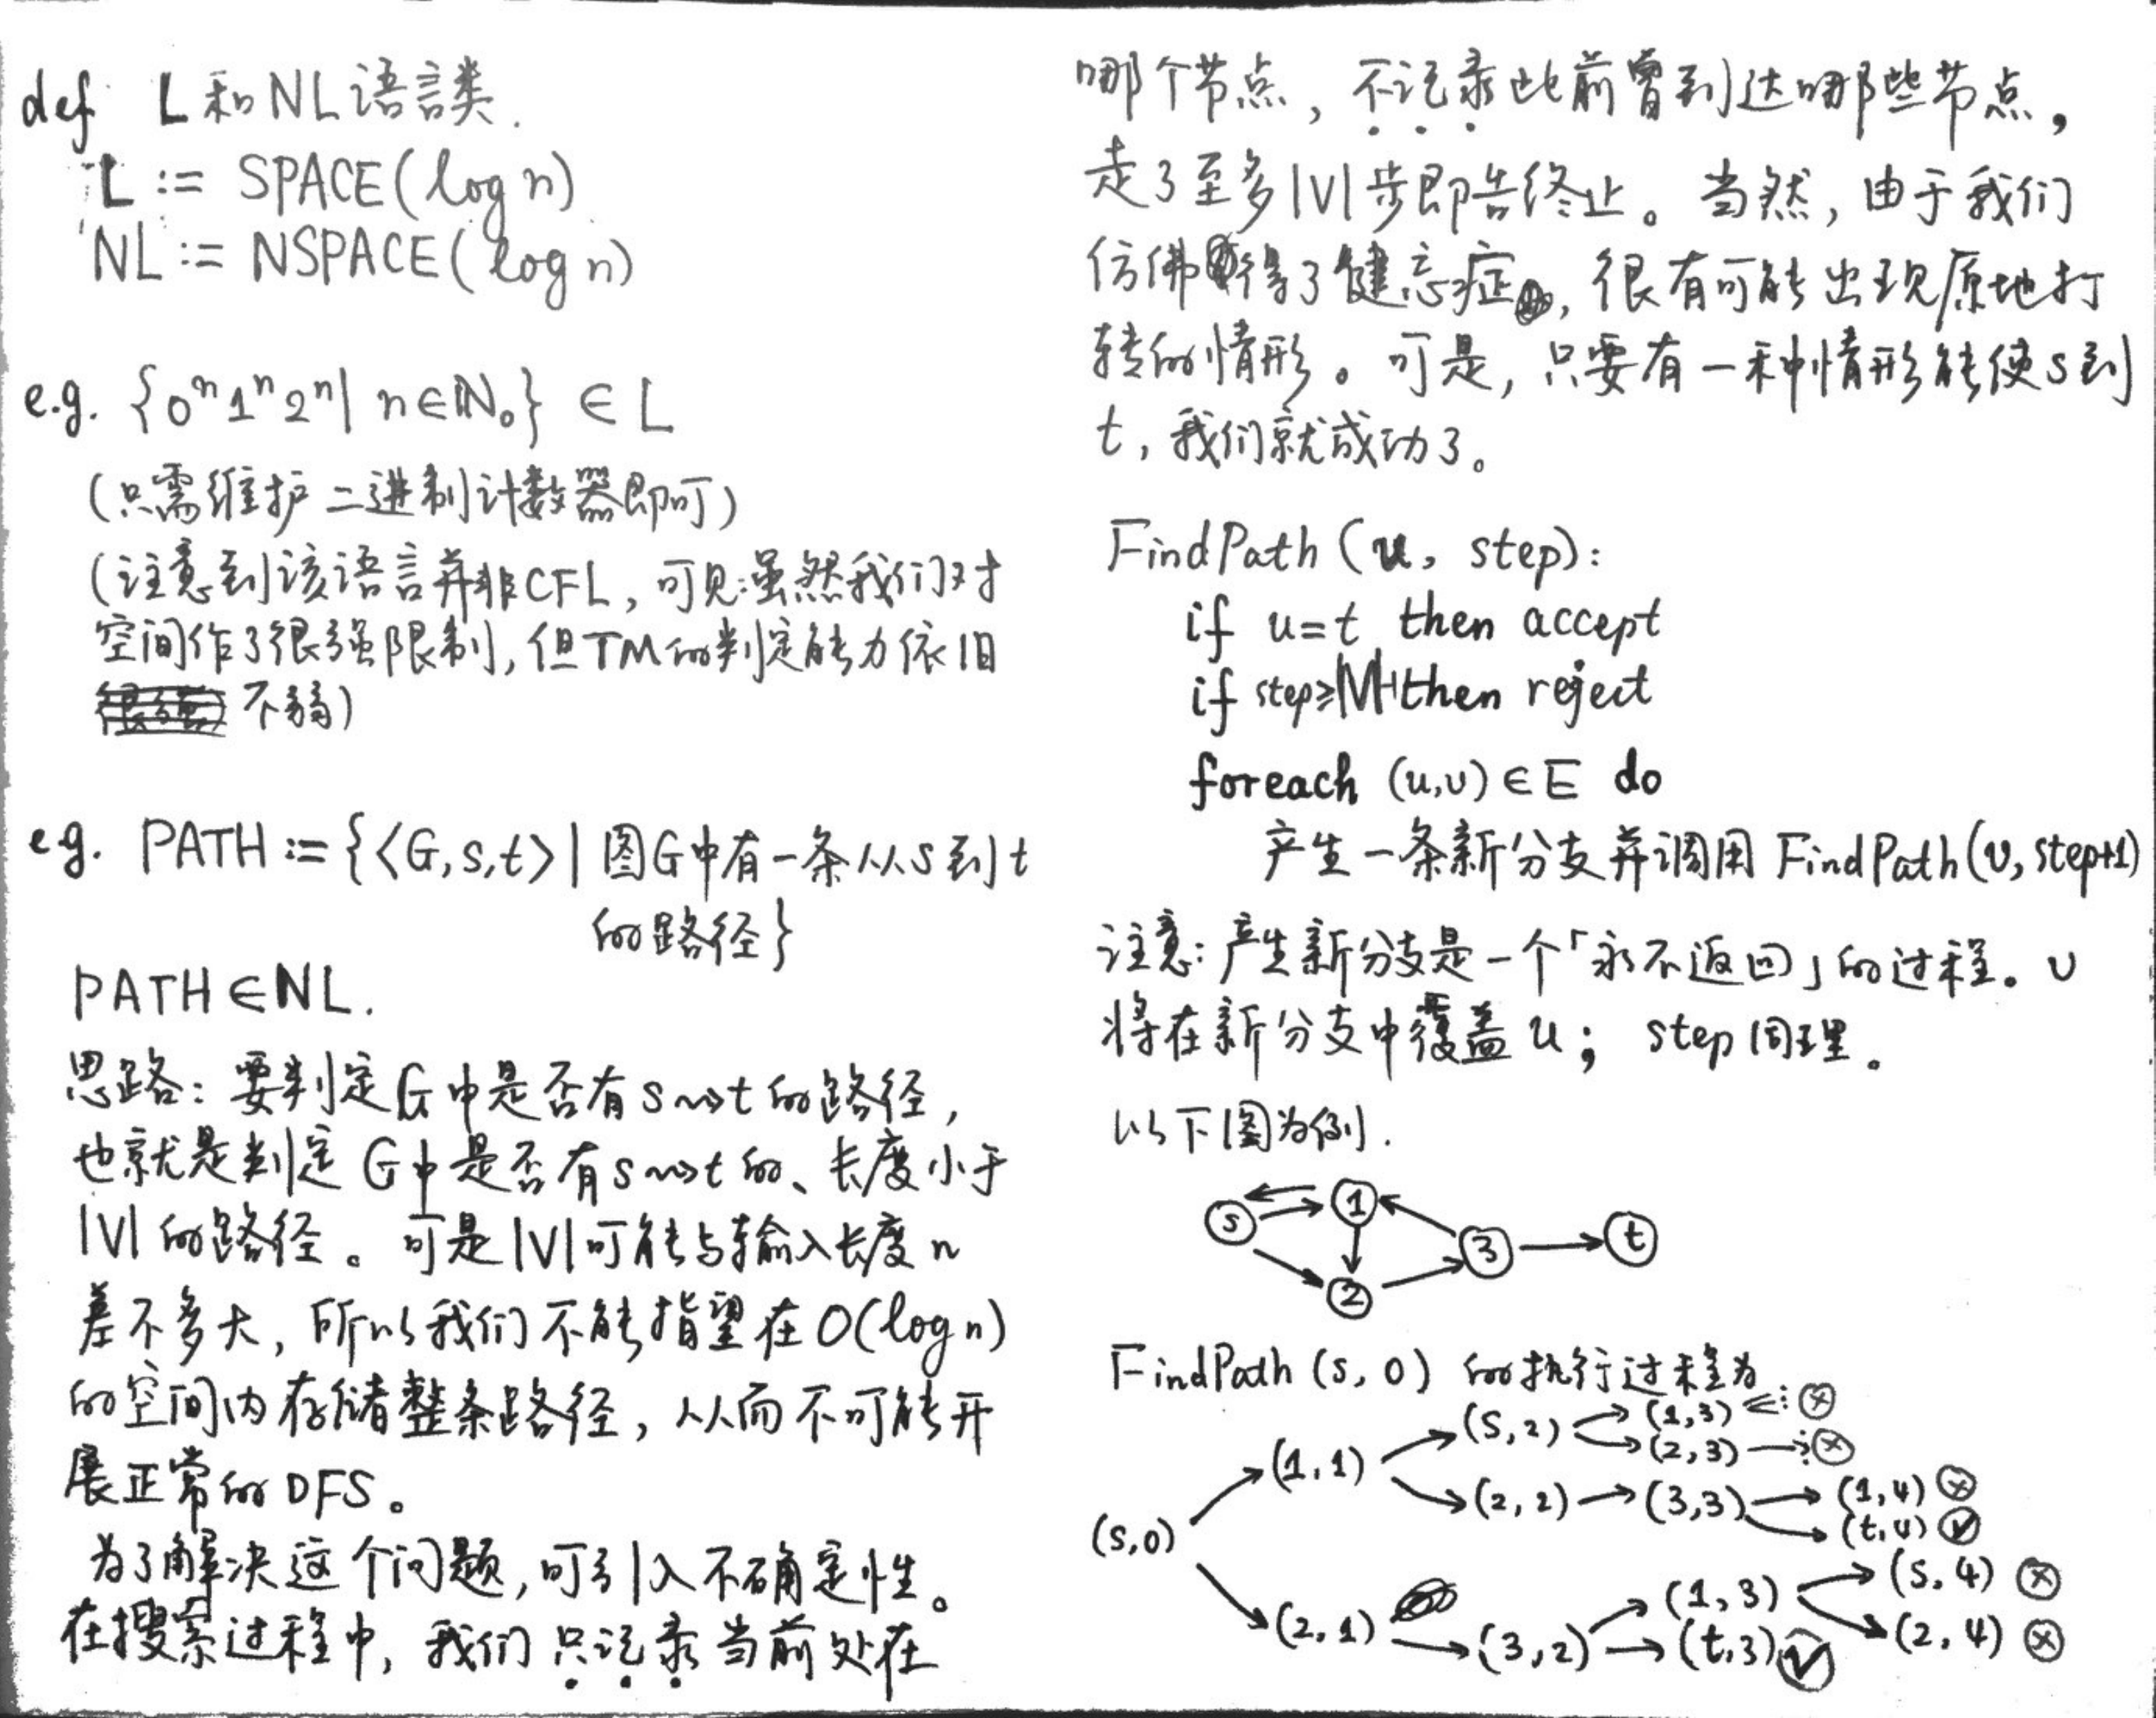 def L和NL语言类.
L := SPACE(log n)
NL := NSPACE(log n)
e.g. {0ⁿ1ⁿ2ⁿ| n∈ℕ₀} ∈ L
(只需维护二进制计数器即可)
(注意到该语言并非CFL，可见:虽然我们对
空间作了很强限制,但TM的判定能力依旧
不弱)
e.g. PATH := {<G,s,t>| 图G中有一条从s到t
的路径}
PATH∈NL.
思路: 要判定G中是否有s⇝t的路径,
也就是判定G中是否有s⇝t的、长度小于
|V|的路径。可是|V|可能与输入长度n
差不多大, 所以我们不能指望在O(log n)
的空间内存储整条路径, 从而不可能开
展正常的DFS。
为了解决这个问题, 可引入不确定性。
在搜索过程中, 我们只记录当前处在
哪个节点, 不记录此前曾到达哪些节点,
走了至多|V|步即告终止。当然, 由于我们
仿佛得了健忘症, 很有可能出现原地打
转的情形。可是, 只要有一种情形能使s到
t, 我们就成功了。
FindPath(u, step):
if u=t then accept
if step≥|V|-1 then reject
foreach (u,v)∈E do
产生一条新分支并调用 FindPath(v, step+1)
注意: 产生新分支是一个「永不返回」的过程。v
将在新分支中覆盖u; step同理。
以下图为例.
s 1 2 3 t
FindPath(s, 0) 的执行过程为
(s,0)
(1,1) (s,2) (1,3) ⋮ ⊗
(2,3) ⋮ ⊗
(2,2) (3,3) (1,4) ⊗
(t,4) ✓
(2,1) (3,2) (1,3) (s,4) ⊗
(t,3) ✓ (2,4) ⊗